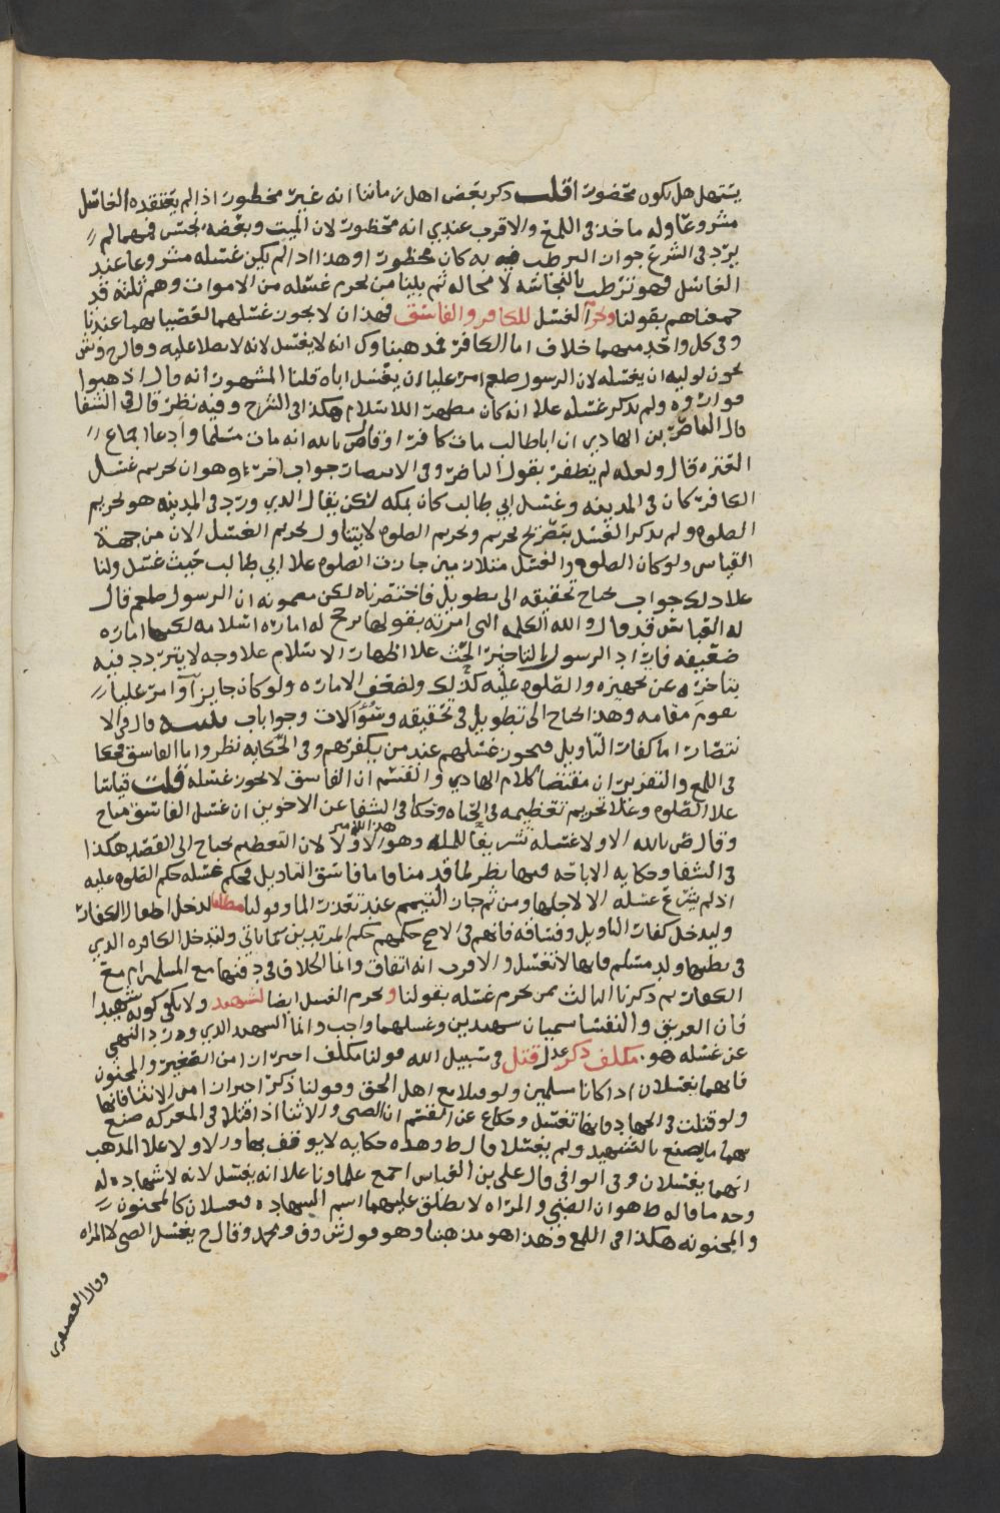 يستهل هل يكون محضورا قلت ذكر بعض اهل زماننا انه غير محظور اذا لم يعتقده الغاسل
مشروعا وله ماخذ في اللمع والاقرب عندي انه محظور لان الميت وبعضه نجس فمهما لم
يرد في الشرع جواز الترطب به كان محظورا وهذا اذا لم يكن غسله مشروعا عند
الغاسل فهو ترطب بالنجاسة لا محالة ثم بينا من يحرم غسله من الاموات وهم ثلثه قد
جمعناهم بقولنا ويحرم الغسل للكافر والفاسق فهذان لا يجوز غسلهما لعصيانهما عندنا
وفي كل واحد منهما خلاف اما الكافر فمذهبنا وك انه لا يغسل لانه لا يصلا عليه وقال ح وش
يجوز لوليه ان يغسله لان الرسول صلعم امر عليا ان يغسل اباه قلنا المشهور انه قال اذهبوا
فواروه ولم يذكر غسله علا انه كان مظهر الاسلام هكذا في الشرح وفيه نظر قال في الشفا
قال الناصر بن الهادي ان اباطالب مات كافرا وقاص بالله انه مات مسلما وادعا اجماع
العتره قال ولعله لم يظفر بقول الناصر وفي الانتصار جواب اخر وهو ان تحريم غسل
الكافر كان في المدينه وغسل ابي طالب كان بمكه لكن يقال الذي ورد في المدينه هو تحريم
الصلوه ولم يذكر الغسل بتصريح تحريم وتحريم الصلوه لا يتناول تحريم الغسل الا من جهة
القياس ولو كان الصلوه والغسل متلازمين جازت الصلوه علا ابي طالب حيث غسل ولنا
علا ذلك جواب يحتاج تحقيقه الى تطويل فاختصرناه لكن مضمونه ان الرسول صلعم قال
له العباس قد قال والله الكلمه التي امرته بقولها يرجح له اماره اسلامه لكنها اماره
ضعيفه فان اد الرسول بالتاخير الحث علا اظهار الاسلام علا وجه لا يتردد فيه
بتاخره عن تجهيزه والصلوه عليه كذلك ولضعف الاماره ولو كان جايزا وامر عليا
يقوم مقامه وهذا يحتاج الى تطويل في تحقيقه وسؤالات وجوابات تنبيه قال في الا
نتصار اما كفار التاويل فيجوز غسلهم عند من يكفرهم وفي الحكايه نظر واما الفاسق فحكا
في اللمع والتقرير ان مقتضا كلام الهادي والقسم ان الفاسق لا يجوز غسله قلت قياسا
علا الصلوه وعلا تحريم تعظيمه في الحياه وحكا في الشفا عن الاخوين ان غسل الفاسق مباح
وقال ض بالله الاولا غسله تشريفا للمله وهو الاولا لان التعظيم يحتاج الى القصد هكذا
هذا للامير
في الشفا وحكايه الاباحه فيها نظر لما قدمنا فاما فاسق التاويل فحكم غسله حكم الصلوه عليه
اذ لم يشرع غسله الا لاجلها ومن ثم جاز التيمم عند تعذر الما وقولنا مطلقا ليدخل اطفال الكفار
وليدخل كفار التاويل وفساقه فانهم في الاصح حكمهم حكم المرتدين كما ياتي ولتدخل الكافره الذي
في بطنها ولد مسلم فانها لا تغسل والاقرب انه اتفاق وانما الخلاف في دفنها مع المسلمين ام مع
الكفار ثم ذكرنا الثالث ممن يحرم غسله بقولنا ويحرم الغسل ايضا لشهيد ولا يكفي كونه شهيدا
فان الغريق والنفسا سميان شهيدين وغسلهما واجب وانما الشهيد الذي ورد النهي
عن غسله هو مكلف ذكر عدل قتل في سبيل الله قولنا مكلف احتراز من الصغير والمجنون
فانهما يغسلان اذا كانا مسلمين ولو قتلا مع اهل الحق وقولنا ذكر احترازا من الانثا فانها
ولو قتلت في الجهاد فانها تغسل وحكا ع عن القسم ان الصبي والانثا اذا قتلا في المعركه صنع
بهما ما يصنع بالشهيد ولم يغسلا قال ط وهذه حكايه لا يوقف بها والاولا علا المذهب
انهما يغسلان وفي الوافي قال علي بن العباس اجمع علماونا علا انه يغسل لانه لا شهاده له
وجه ما قاله ط هو ان الصبي والمراه لا يطلق عليهما اسم الشهاده فيغسلان كالمجنون
والمجنونه هكذا في اللمع وهذا هو مذهبنا وهو قول ش وف ومحمد وقال ح يغسل الصبي لا المراه
وقال العصيفري